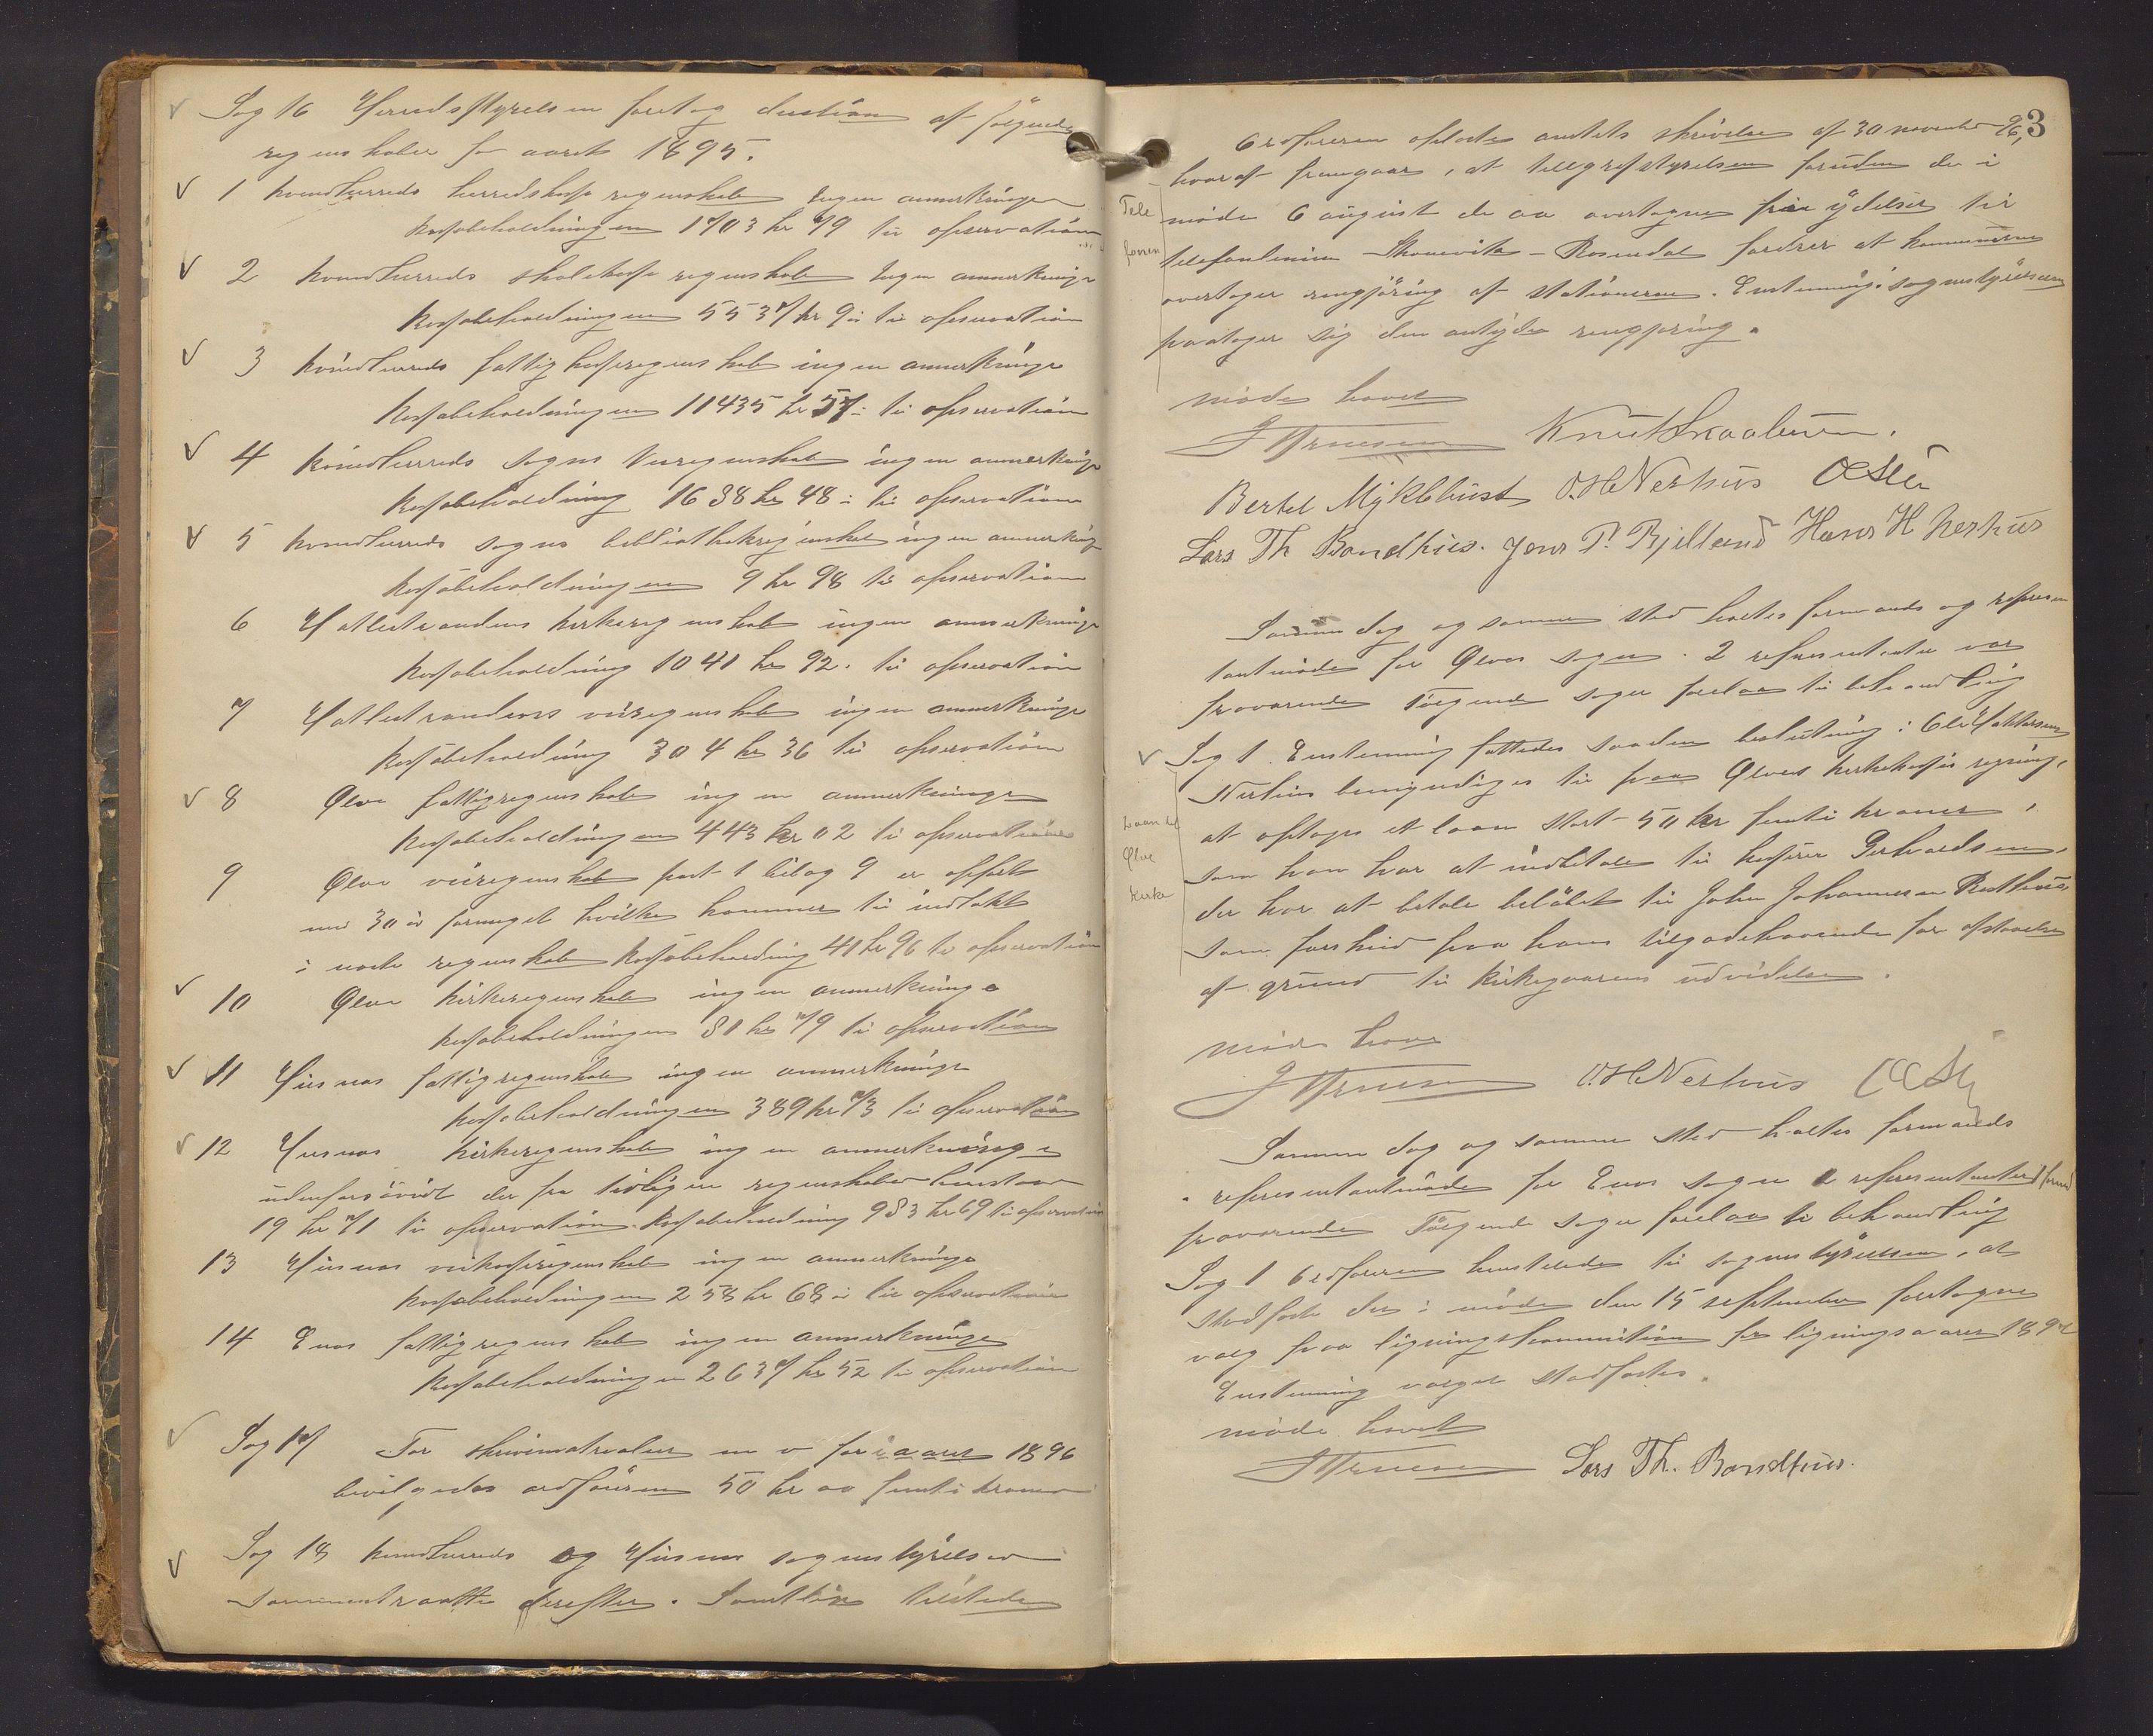 Sag 16 Herredsstyrelsen foretog decision af følgende
regnskaber for aaret 1895.
1 Kvindherreds herredskasse regnskab Ingen anmerkninger
Kassabeholdningen 1703 kr 79 til observation
2 Kvindherreds skolekasse regnskab Ingen anmerkninge
Kassabeholdningen 5537 kr 9 ø til observation
3 Kvindherreds fattigkasseregnskab ingen anmerkninge
Kassabeholdningen 11435 kr 57 ø til observation
4 Kvindherreds sogns veiregnskab ingen anmerkninge
Kassabeholdning 1638 kr 48 ø til observation
5 Kvindherreds sogns bibliothekregnskab ingen anmerkning
Kassabeholdningen 9 kr 98 til observation
6 Hatlestrandens kirkeregnskab ingen anmerkninge
Kassabeholdning 1041 kr 92. til observation
7 Hatlestrandens veiregnskab ingen anmerkninge
Kassabeholdning 304 kr 36 til observation
8 Ølve fattigregnskab ingen anmerkninge
Kassabeholdningen 443 kr 02 til observation
9 Ølve veiregnskab post 1 bilag 9 er opført
med 30 ø formeget hvilke kommer til indtekt
i neste regnskab Kassabeholdning 41 kr 96 til observation
10 Ølve kirkeregnskab ingen anmerkninge
Kassabeholdningen 81 kr 79 til observation
11 Husnes fattigregnskab ingen anmerkninge
Kassabeholdningen 389 kr 73 til observation
12 Husnes kirkeregnskab ingen anmerkninge
udenforsåvidt der fra tidligere regnskaber henstaar
19 kr 71 til observation. Kassabeholdning 983 kr 69 til observation
13 Husnes veikasseregnskab ingen anmerkninge
Kassabeholdningen 258 kr 68 ø til observation
14 Enes fattigregnskab ingen anmerkninge
Kassabeholdningen 2637 kr 52 til observation
Sag 17 For skrivematrialier m v for aaret 1896
bevilgedes ordføreren 50 kr oo femti kroner
Sag 18 Kvindherreds og Husnes sognestyrelser
sammentraatte derefter. Samtlige tilstede
3
Ordføreren oplæste amtets skrivelse af 30 november 96,
hvoraf fremgaar, at telegrafstyrelsen foruden de i
Tele
møde 6 august d aa overtagne frie ydelser til
fonen
telefonlinien Skonevik - Rosendal fordrer at kommunerne
overtager rengjøring af stationerne. Enstemmig: sognestyrelserne
paatager sig den antydede rengjøring.
møde hævet
Knut Skaaluren.
Bertel Myklebust O. H Nerhus
Lars Th Bondhus. Jens P. Bjelland Hans H. Nerhus
Samme dag og samme sted holdtes formands og represen
tantmøde for Ølves sogn. 2 representanter var
fraværende Følgende sager forelaa til behandling
Sag 1. Enstemmig fattedes saadan beslutning: Ole Hattersen
Nerhus bemyndiges til paa Ølves kirkekasses regning,
Laan til
at optage et laan stort 50 kr femti kroner,
Ølve
som han har at indbetale til kasserer Gerhardsen,
Kirke
der har at betale beløbet til John Johannesen
som forskud paa hans tilgodehavende for afstaaelse
af grund til kirkegaarens udvidelse.
møde hævet
O. H Nerhus
Samme dag og samme sted holdtes formands
representantmøde for Enes sogn 2 representanter
fraværende Følgende sager forelaa til behandling
Sag 1 Ordføreren henstillede til sognestyrelsen, at
stadfeste det i møde den 15 september foretagne
valg paa ligningskommission for ligningsaaret 1897
Enstemmig valget stadfestes.
møde hævet
Lars Th. Bondhus.